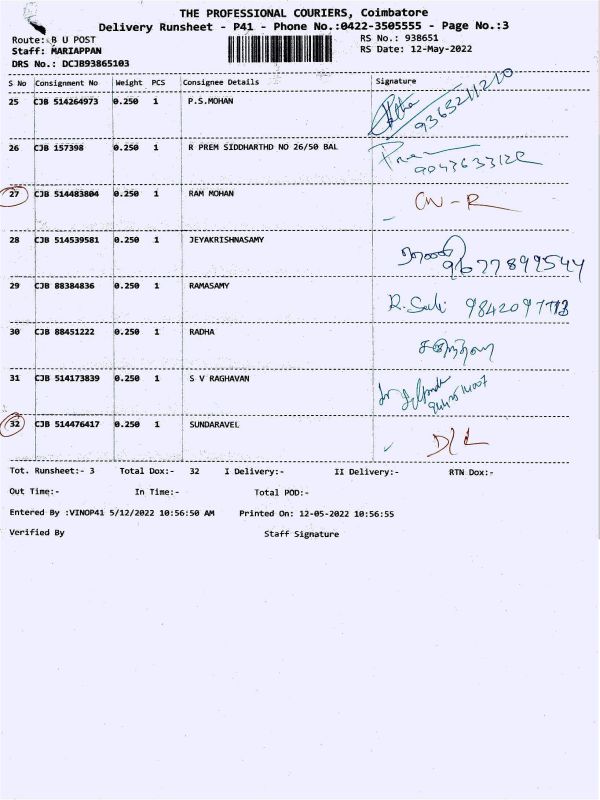 THE PROFESSIONAL COURIERS, Coimbatore
Delivery Runsheet - P41 - Phone No.:0422-3505555 - Page No.:3
Route: B U POST RS No.: 938651
Staff: MARIAPPAN RS Date: 12-May-2022
DRS No.: DCJB93865103
S No Consignment No Weight PCS Consignee Details Signature
25 CJB 514264973 0.250 1 P.S.MOHAN
9363211210
26 CJB 157398 0.250 1 R PREM SIDDHARTHD NO 26/50 BAL
27 CJB 514483804 0.250 1 RAM MOHAN
28 CJB 514539581 0.250 1 JEYAKRISHNASAMY
9677899544
29 CJB 88384836 0.250 1 RAMASAMY
30 CJB 88451222 0.250 1 RADHA
31 CJB 514173839 0.250 1 S V RAGHAVAN
32 CJB 514476417 0.250 1 SUNDARAVEL
D/L
Tot. Runsheet:- 3 Total Dox:- 32 I Delivery:- II Delivery:- RTN Dox:-
Out Time:- In Time:- Total POD:-
Entered By :VINOP41 5/12/2022 10:56:50 AM Printed On: 12-05-2022 10:56:55
Verified By Staff Signature